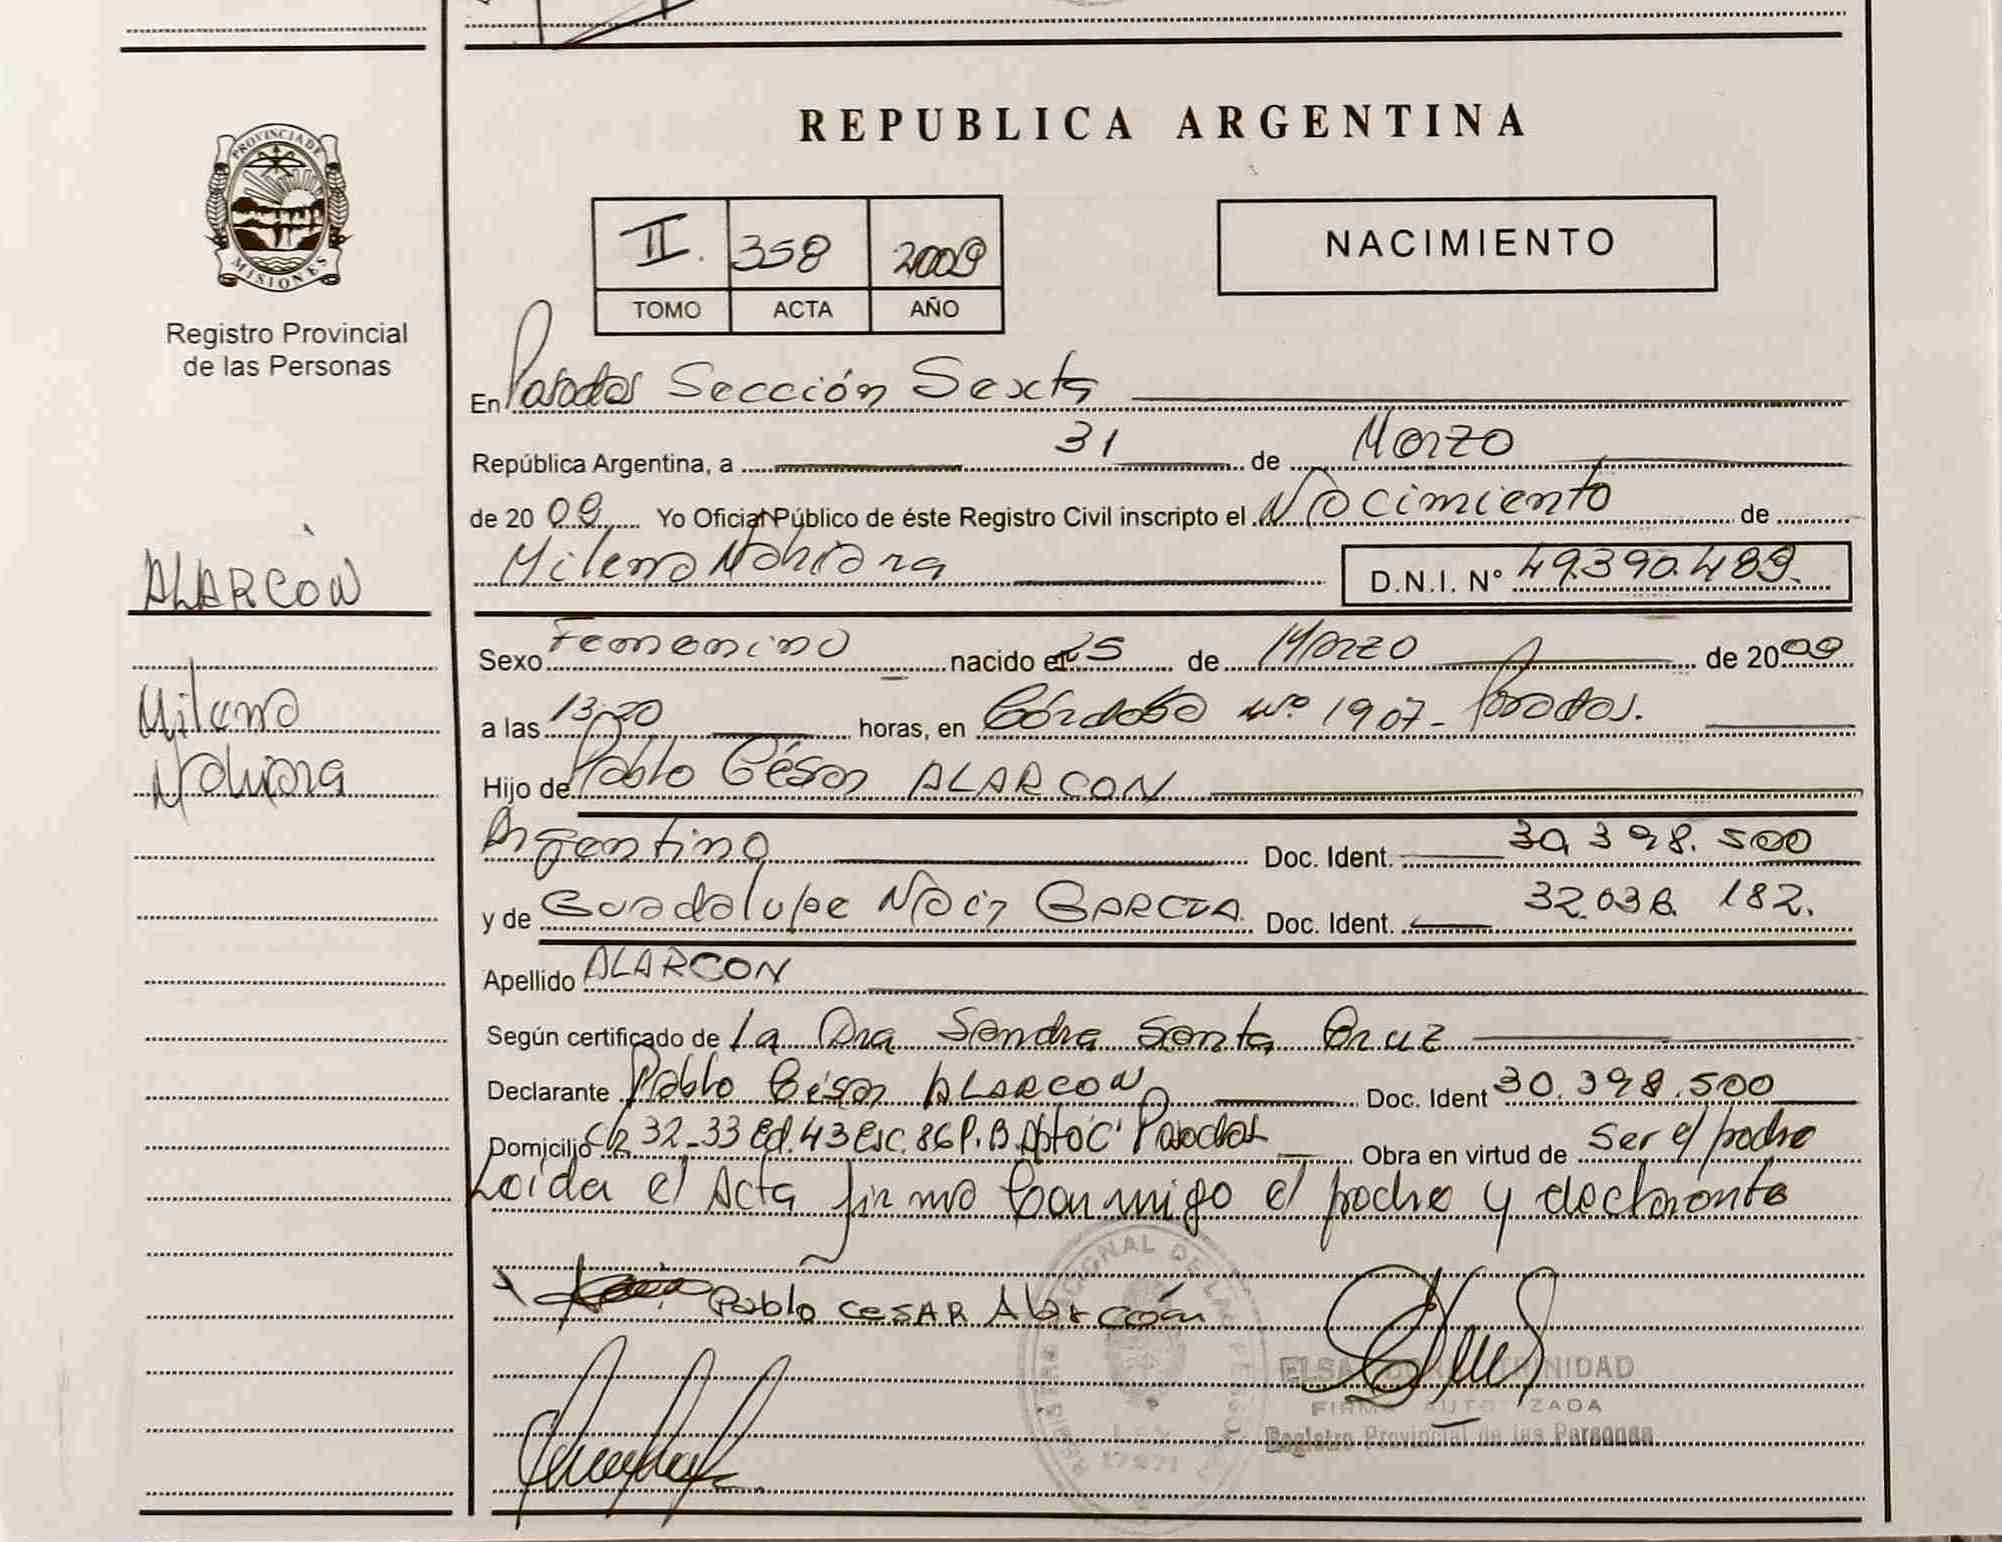 REPUBLICA ARGENTINA
PROVINCIA DE MISIONES
Registro Provincial
de las Personas
II. 358 2009
TOMO ACTA AÑO
NACIMIENTO
En Posadas Sección Sexta
República Argentina, a 31 de Marzo
de 2009 Yo Oficial Público de éste Registro Civil inscripto el Nacimiento de
Milena Nahiara D.N.I. N° 49.390.489.
ALARCÓN
Milena
Nahiara
Sexo Femenino nacido el 25 de Marzo de 2009
a las 13,20 horas, en Córdoba Nº 1907 - Posadas.
Hijo de Pablo César ALARCON
Argentino Doc. Ident. 30.398.500
y de Guadalupe Noir GARCIA Doc. Ident. 32.036.182.
Apellido ALARCON
Según certificado de La Dra Sandra Santa Cruz
Declarante Pablo César ALARCON Doc. Ident 30.398.500
Domicilio Ch 32-33 Ed. 43 Esc. 86 P.B. Dpto "C" Posadas Obra en virtud de ser el padre
Leída el Acta firma conmigo el padre y declarante
Pablo CESAR Alarcón
ELSA TRINIDAD
FIRMA AUTORIZADA
Registro Provincial de las Personas